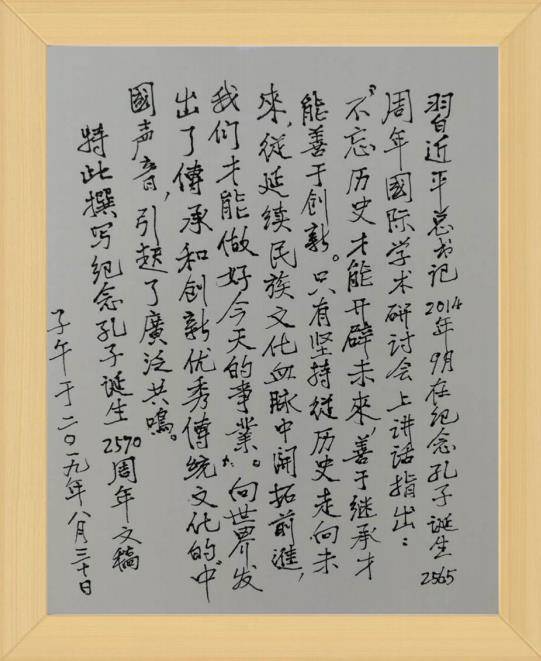 習近平总书记2014年9月在纪念孔子诞生2565
周年國际学术研讨会上讲话指出：
“不忘历史才能开辟未來，善于继承才
能善于创新。只有坚持從历史走向未
來，從延续民族文化血脉中開拓前進，
我们才能做好今天的事業”。向世界发
出了傳承和创新优秀傳統文化的“中
國声音，引起了廣泛共鳴。
特此撰写纪念孔子诞生2570周年文稿
子午于二〇一九年八月三十日